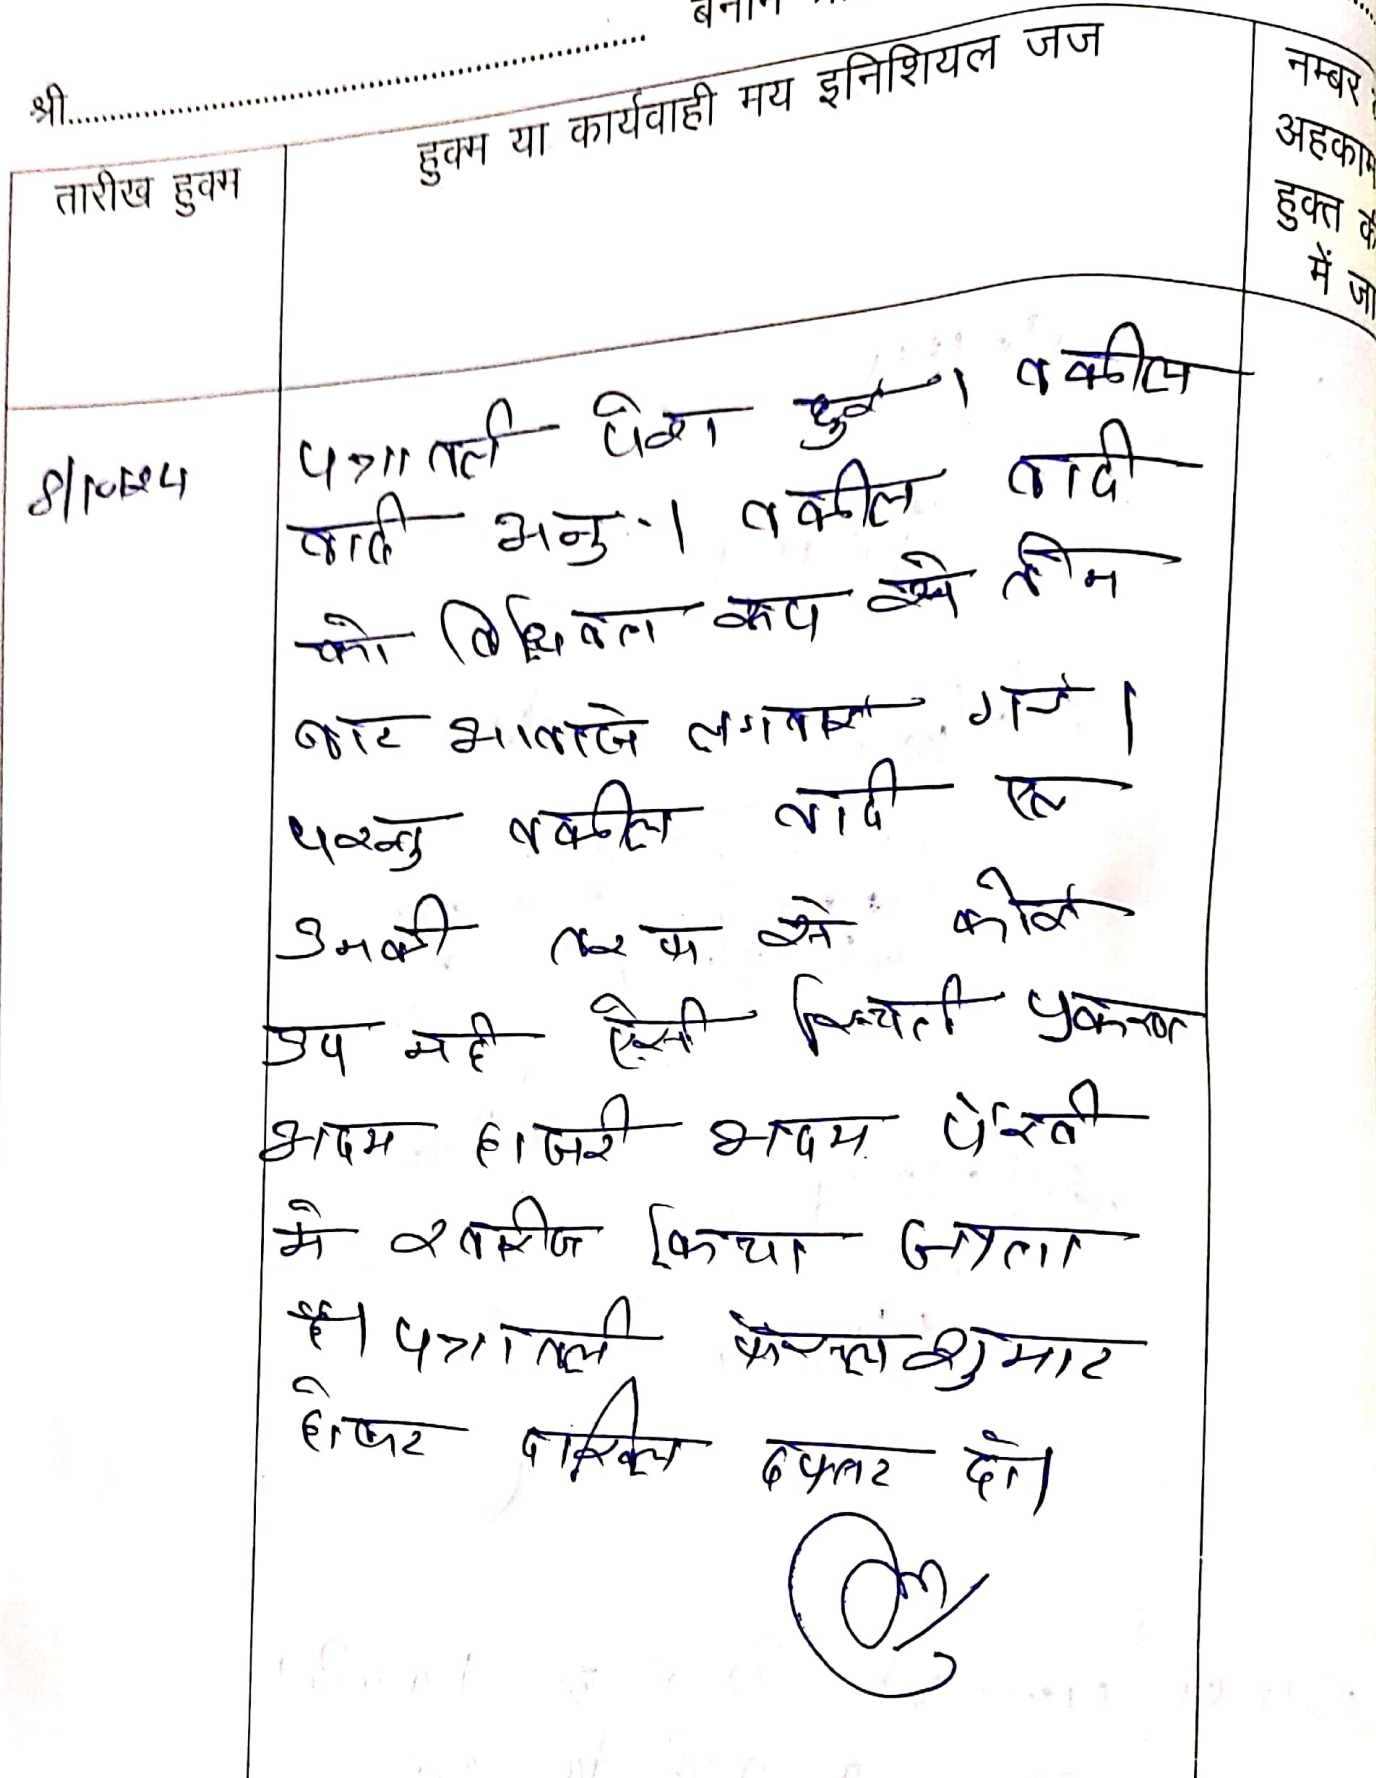 बनाम
श्री
हुक्म या कार्यवाही मय इनिशियल जज
तारीख हुक्म
नम्बर
अहकाम
हुक्त के
में जा
पत्रावली पेश हुई। वकील
वादी अनु.। वकील वादी
को विधिवत रूप से तीन
बार आवाजे लगवाई गई।
परन्तु वकील वादी एव
उनकी तरफ से कोई
उप नही ऐसी स्थिती प्रकरण
अदम हाजरी अदम पेरवी
मे खारीज किया जाता
है। पत्रावली फैसल शुमार
होकर दाखिल दफ्तर हो।